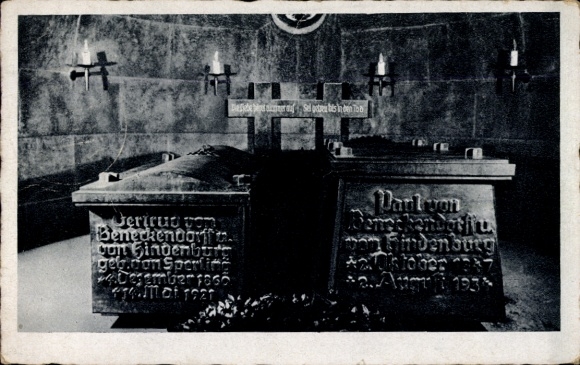 Die Liebe höret nimmer auf
Sei getreu bis in den Tod
Gertrud von
Beneckendorff u.
von Hindenburg
geb. von Sperling
* 4. Dezember 1860
† 14. Mai 1921
Paul von
Beneckendorff u.
von Hindenburg
* 2. Oktober 1847
† 2. August 1934